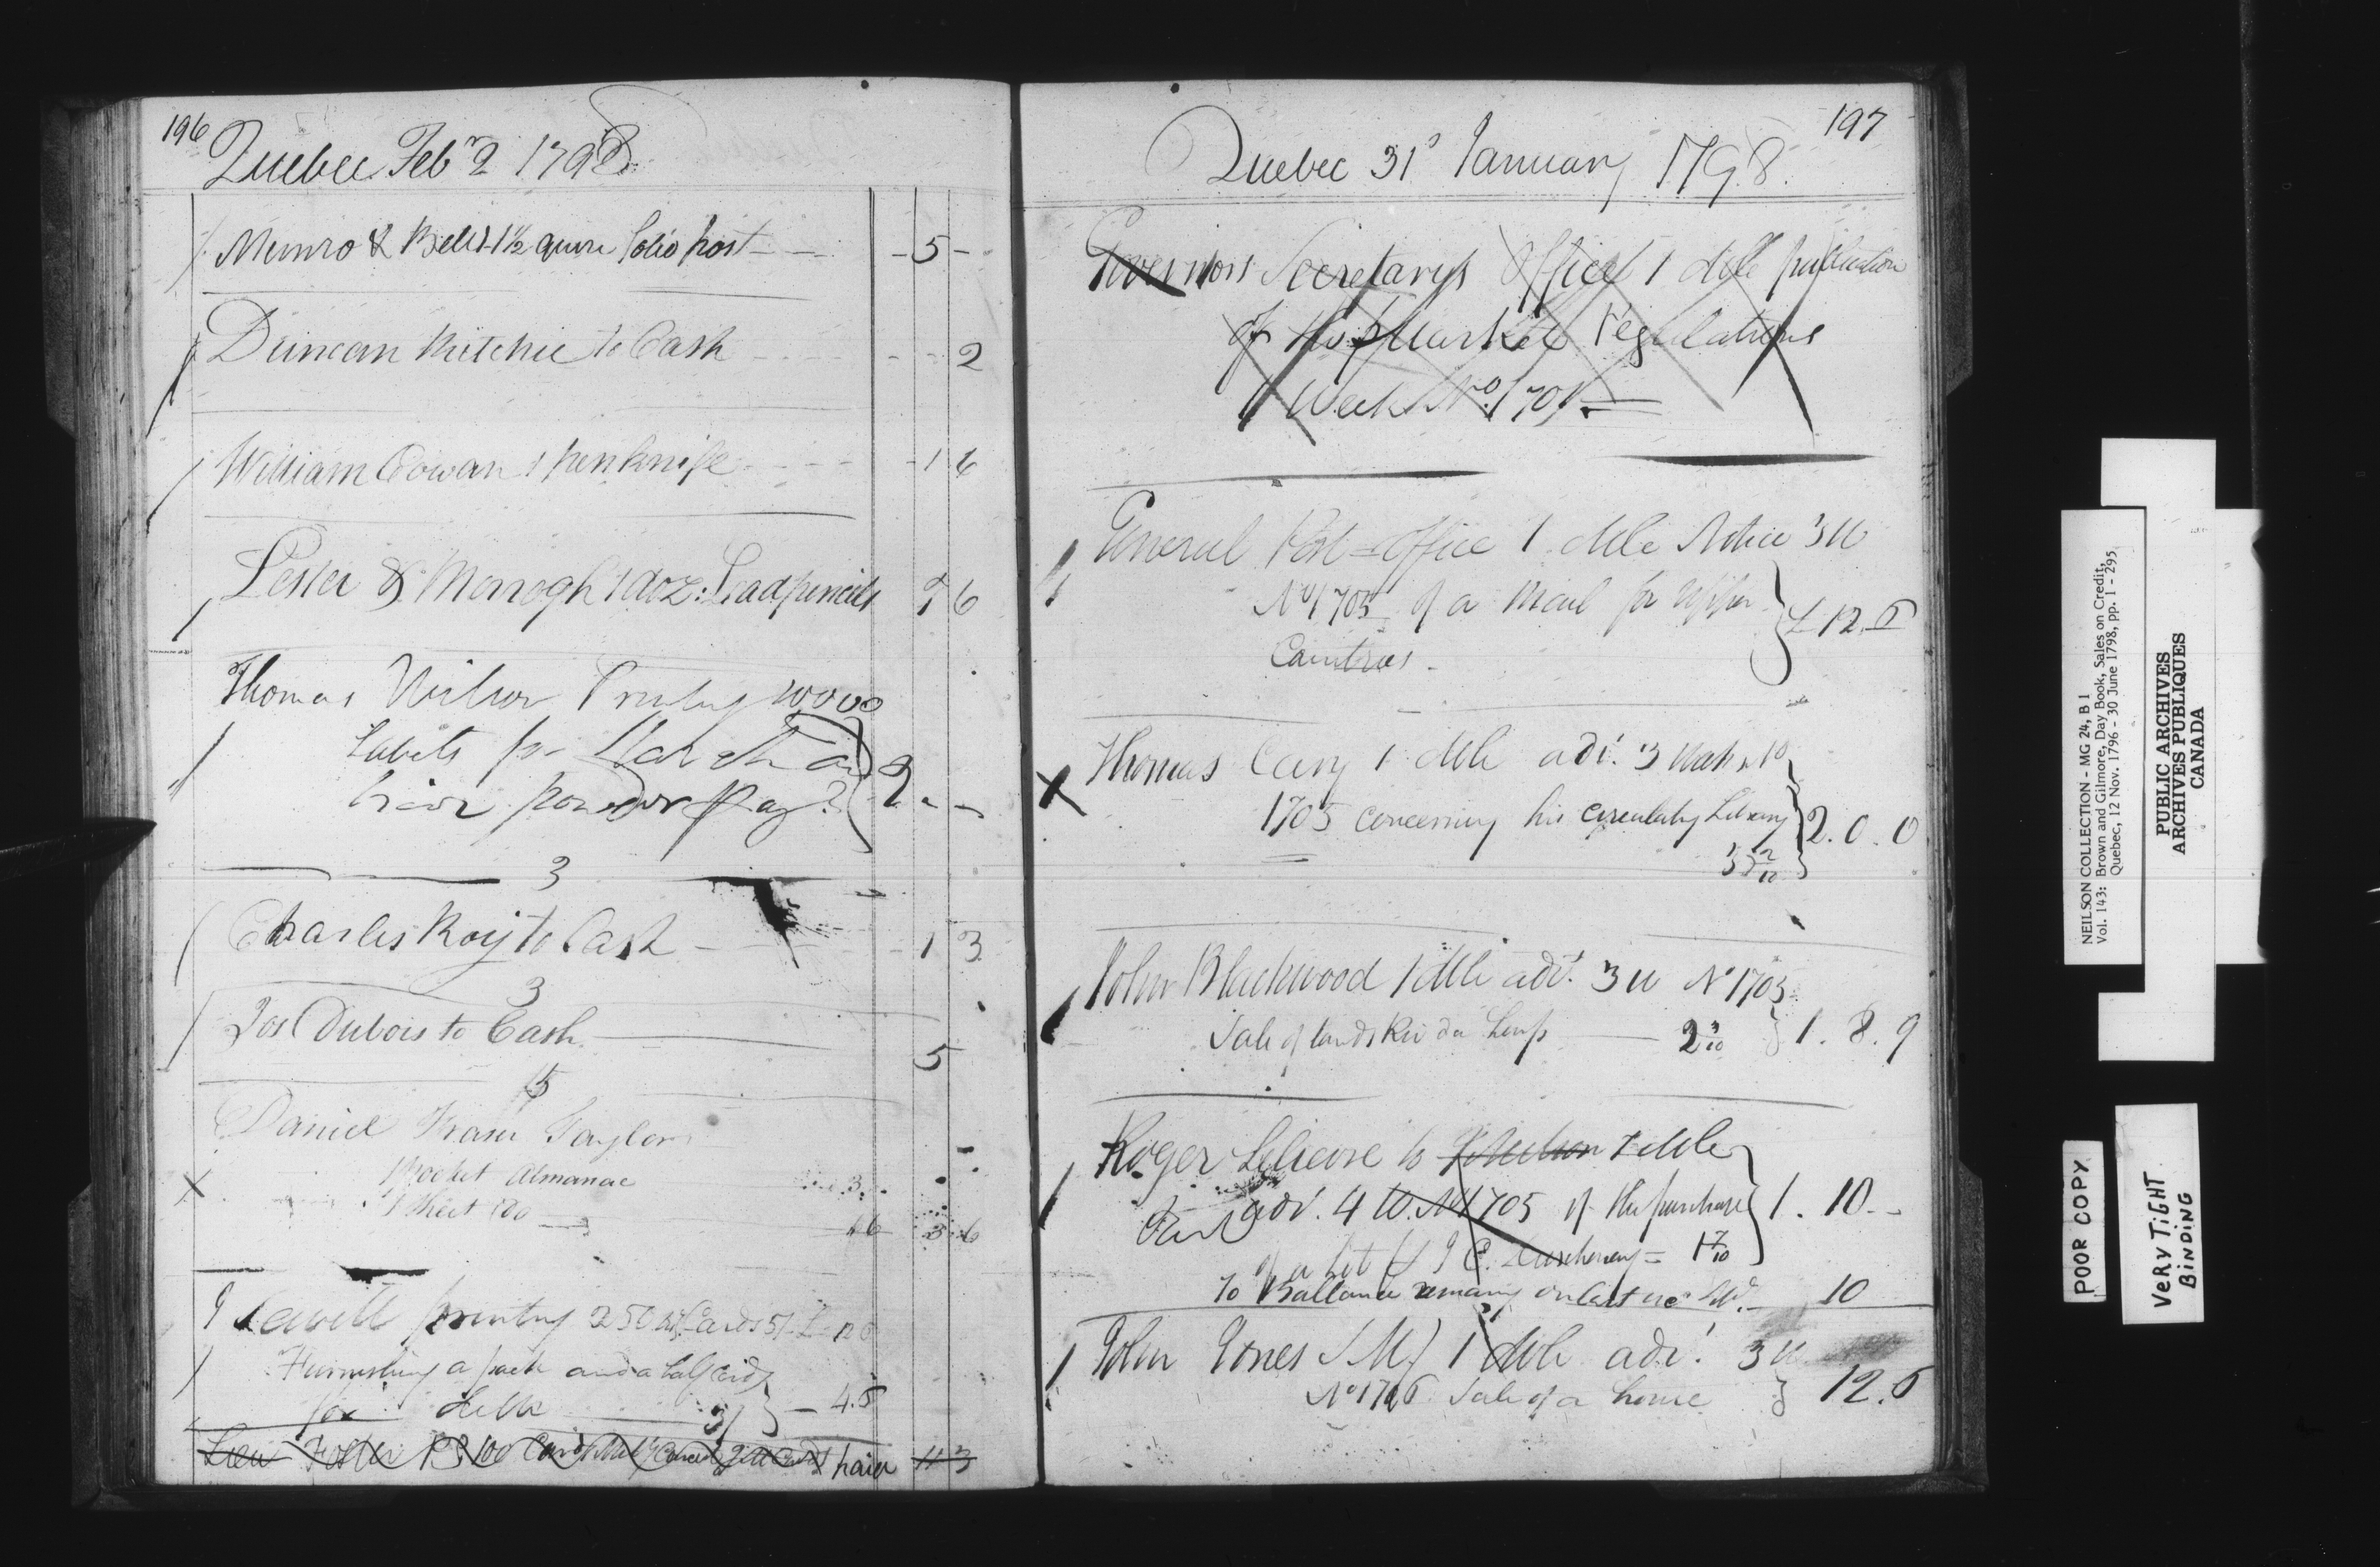 196
Quebec Feb 2 1798
Munro & Bell 1 1/2 quire folio post - 5 -
Duncan Ritchie to Cash 2
William Cowan 1 penknife 1 6
Lester & Morrogh 1 doz: Lead pencils 6
Thomas Wilson Printing
Labels for Starch and
hair powder 2 - -
3
Charles Roy to Cash 1 3
3
Jos Dubois to Cash 5
5
Daniel Fraser Taylor
1 Pocket Almanac 3
1 Sheet Do 6 3 6
printing 250 Cards 5/
Furnishing a pack and a half cards
for 3/ 4.6
Foster 100 Cards paid 11 3
197
Quebec 31 January 1798.
Governors Secretarys Office 1 dble publication
of the Market Regulations
Week No. 1705
General Post-Office 1 dble Notice 3 W
No 1705 of a Mail for Upper
Countries £ 12.6
Thomas Cary 1 dble adv. 3 No
1705 concerning his circulating Library 2.0.0
John Blackwood 1 dble adv. 3 W No 1705
Sale of lands Riv du Loup 2 3/10 1. 8. 9
Roger Lelievre to J Neilson 1 dble
adv. 4 W. No 1705 of the purchase 1. 10 -
of a lot 1 7/10
To Ballance remaing on last 10
John Jones 1 dble adv. 3 W
Sale of a house 12.6
NEILSON COLLECTION - MG 24, B 1
Vol. 143: Brown and Gilmore, Day Book, Sales on Credit,
Quebec, 12 Nov. 1796 - 30 June 1798, pp. 1 - 295
PUBLIC ARCHIVES
ARCHIVES PUBLIQUES
CANADA
POOR COPY
VERY TIGHT
BINDING